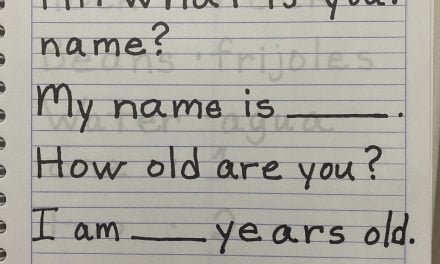 Hi! What is your
name?
beans · frijoles
My name is ______.
water agua
How old are you?
I am ____ years old.